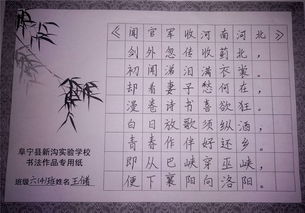 《闻官军收河南河北》
剑外忽传收蓟北，
初闻涕泪满衣裳。
却看妻子愁何在，
漫卷诗书喜欲狂。
白日放歌须纵酒，
青春作伴好还乡。
即从巴峡穿巫峡，
便下襄阳向洛阳。
阜宁县新沟实验学校
书法作品专用纸
班级六(4)班姓名王